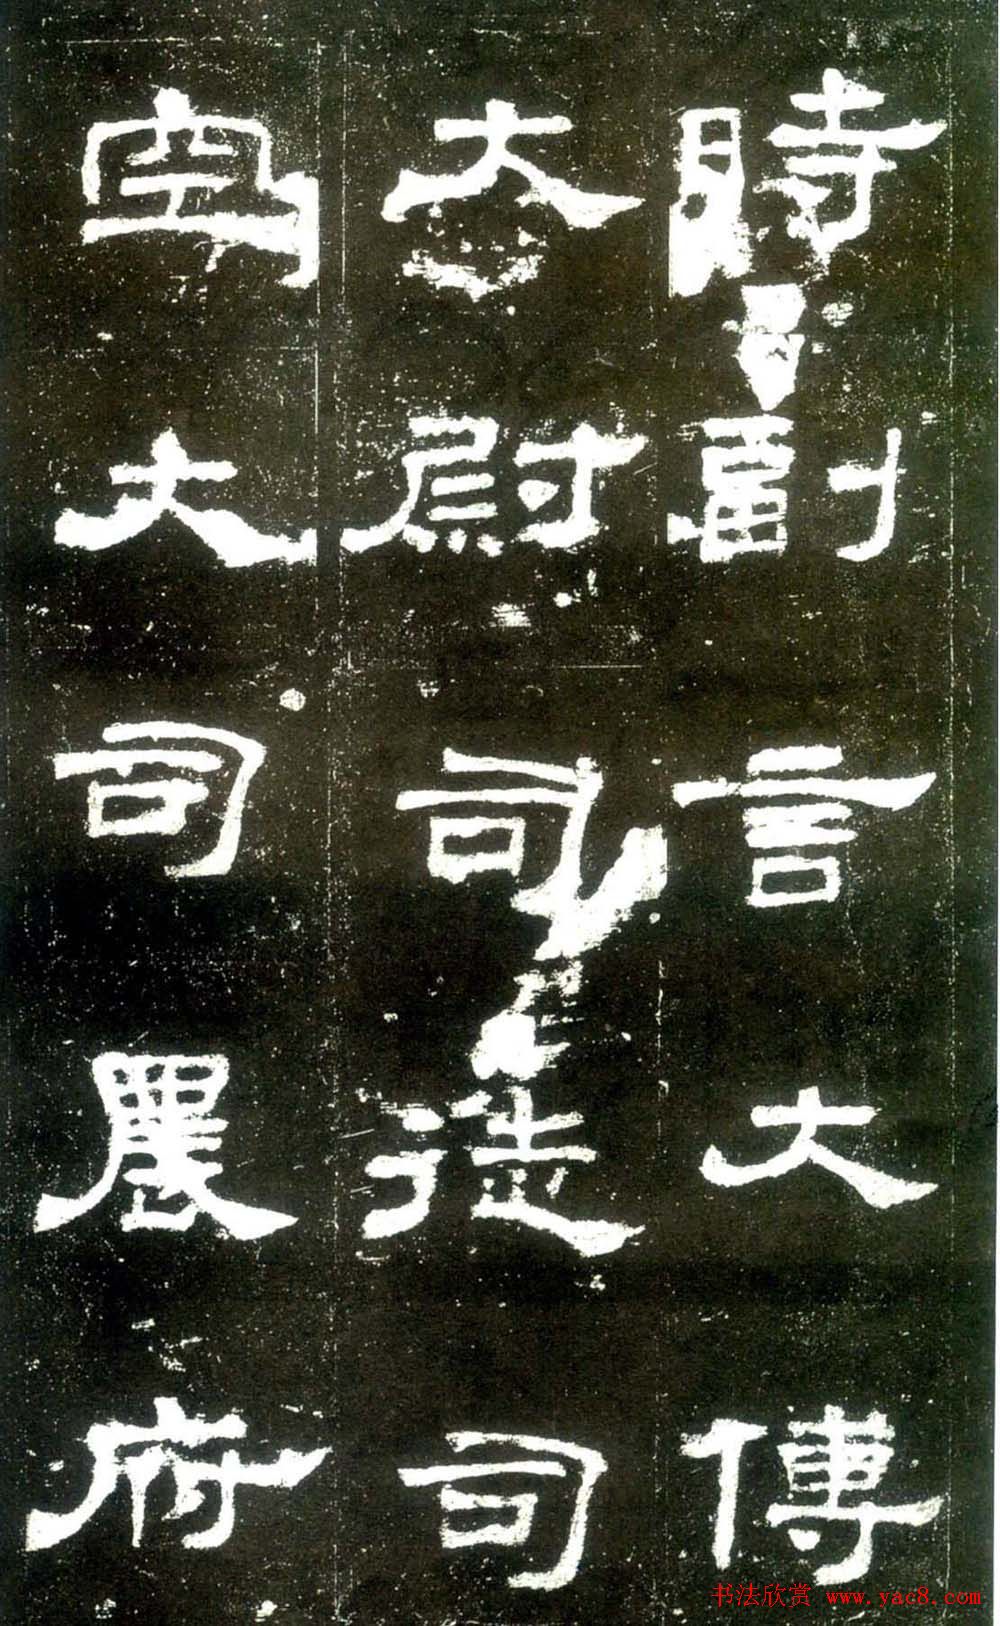 時副言大傅
太尉司徒司
空大司農府
书法欣赏 www.yac8.com